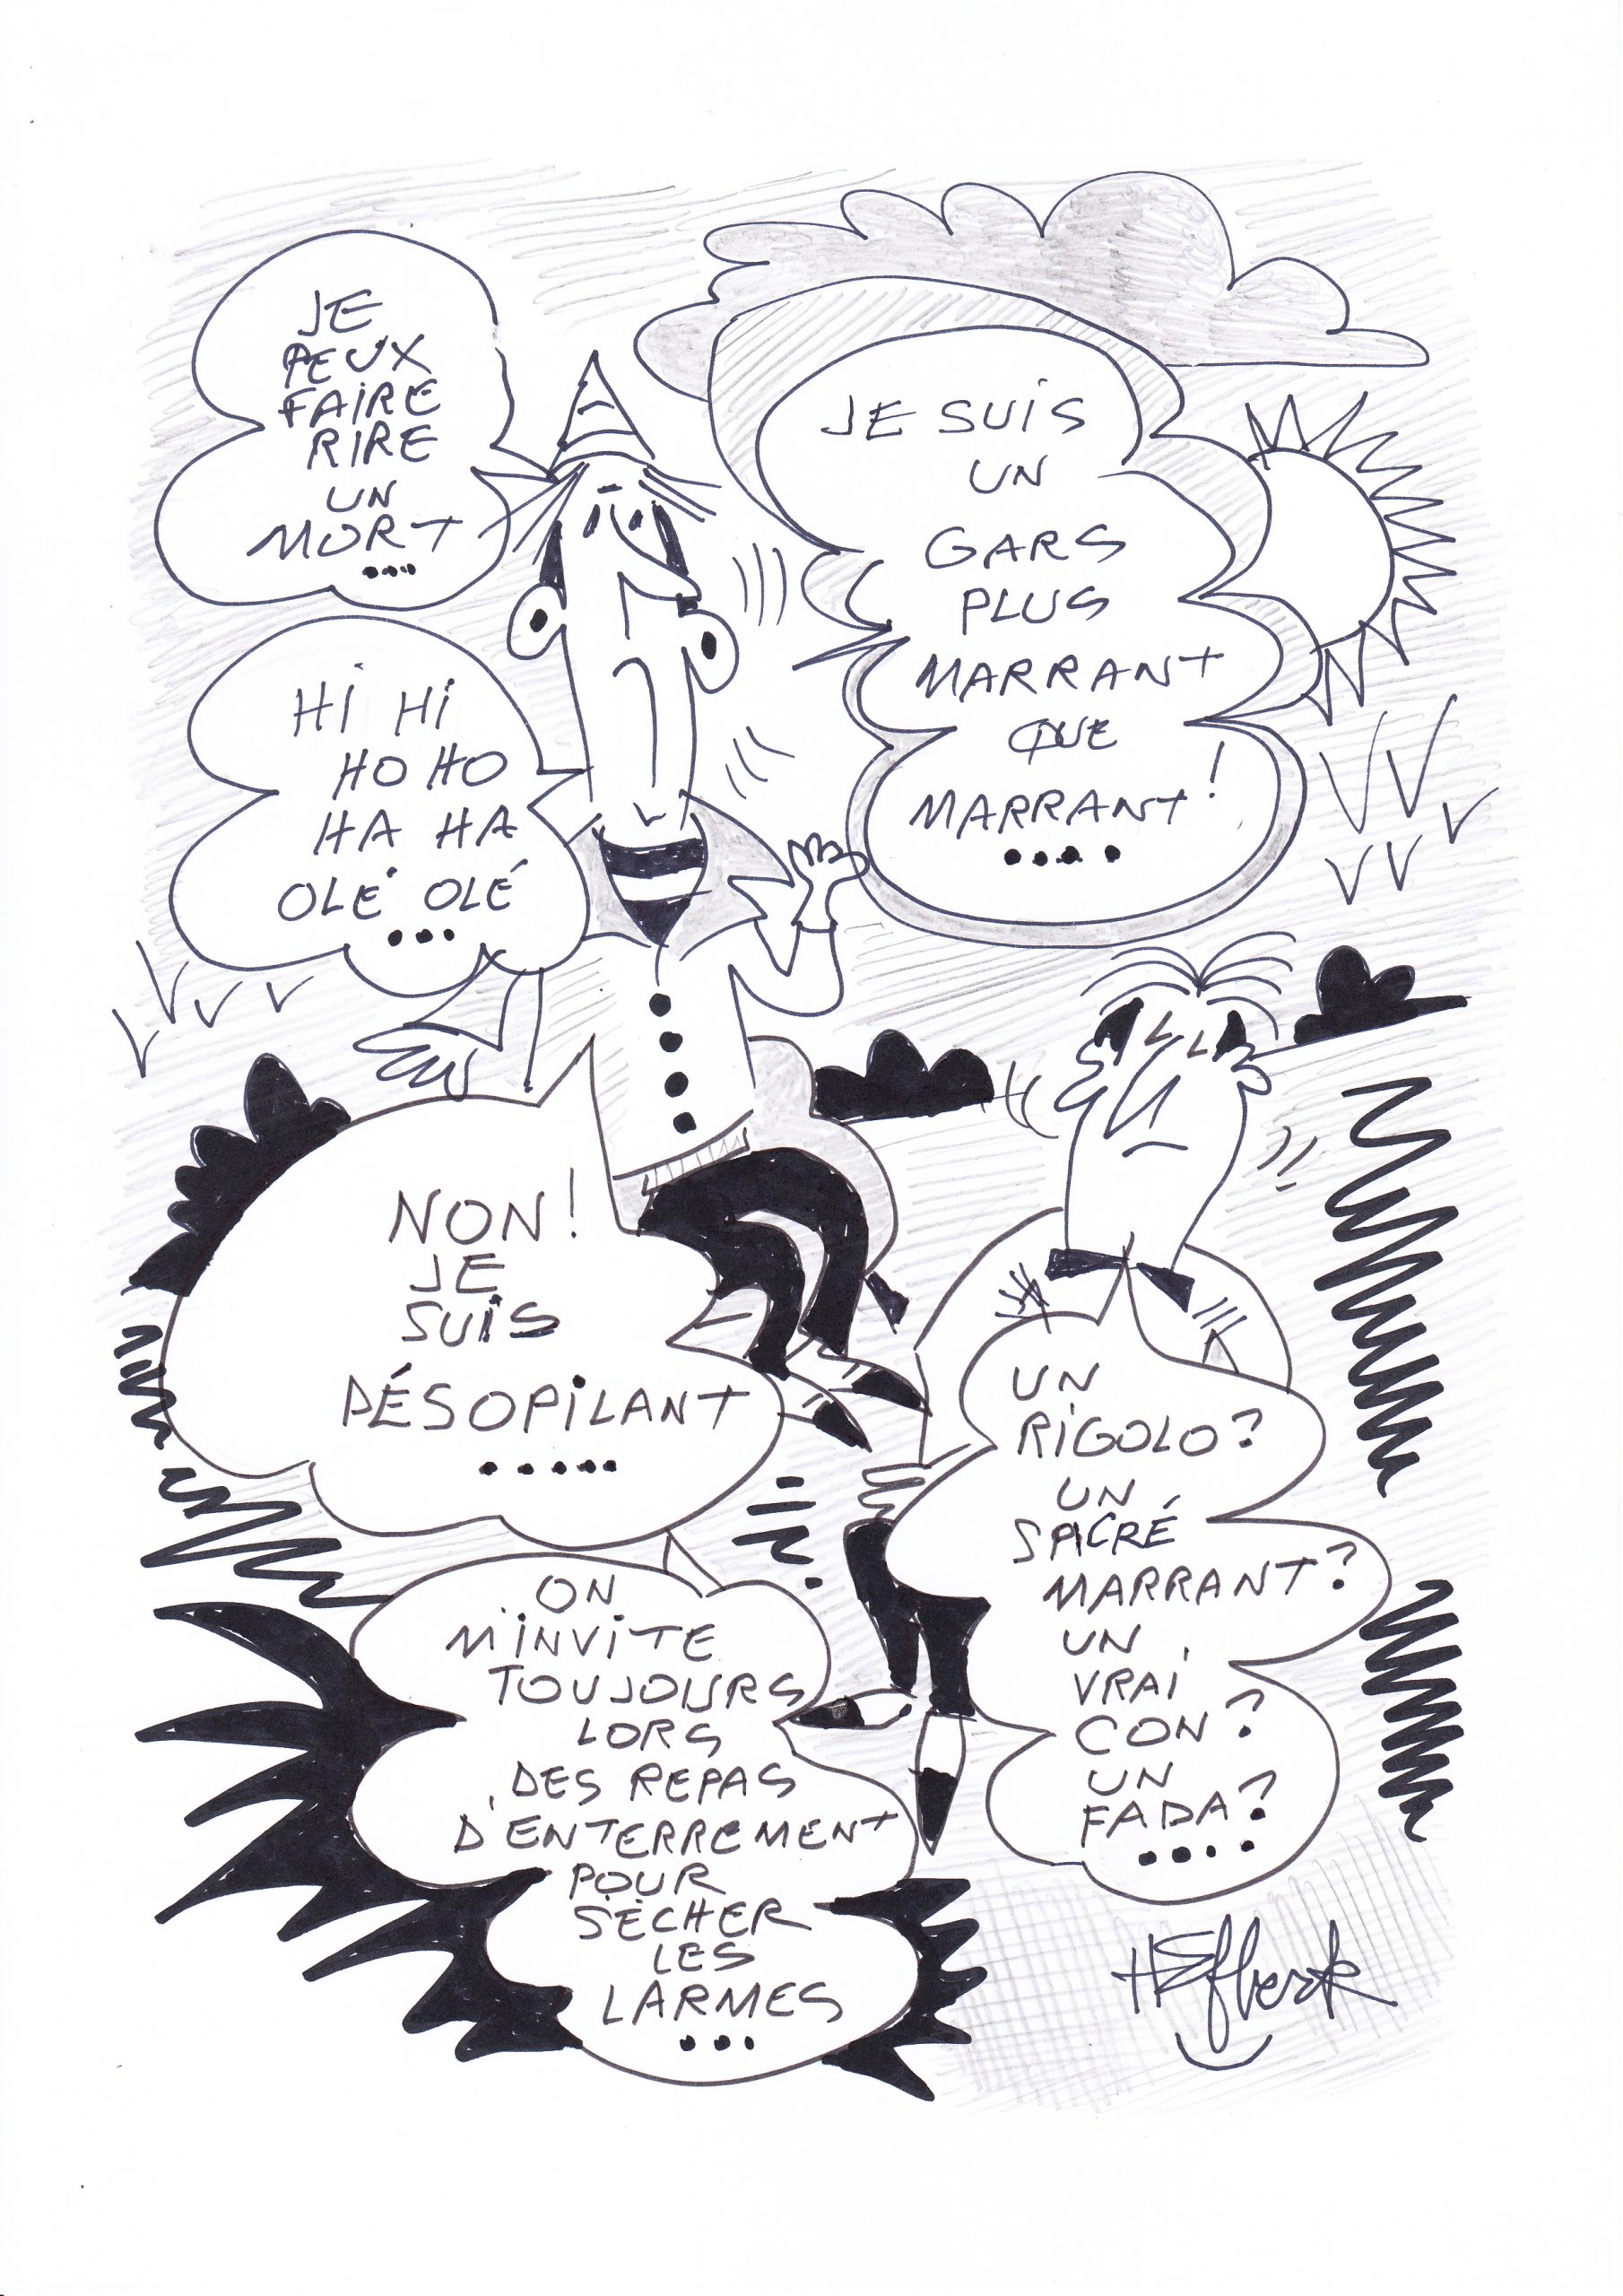 JE
PEUX
FAIRE
RIRE
UN
MORT
...
JE SUIS
UN
GARS
PLUS
MARRANT
QUE
MARRANT!
....
HI HI
HO HO
HA HA
OLÉ OLÉ
...
NON!
JE
SUIS
DÉSOPILANT
.....
UN
RIGOLO?
UN
SACRÉ
MARRANT?
UN
VRAI
CON?
UN
FADA?
....
ON
M'INVITE
TOUJOURS
LORS
DES REPAS
D'ENTERREMENT
POUR
SÉCHER
LES
LARMES
...